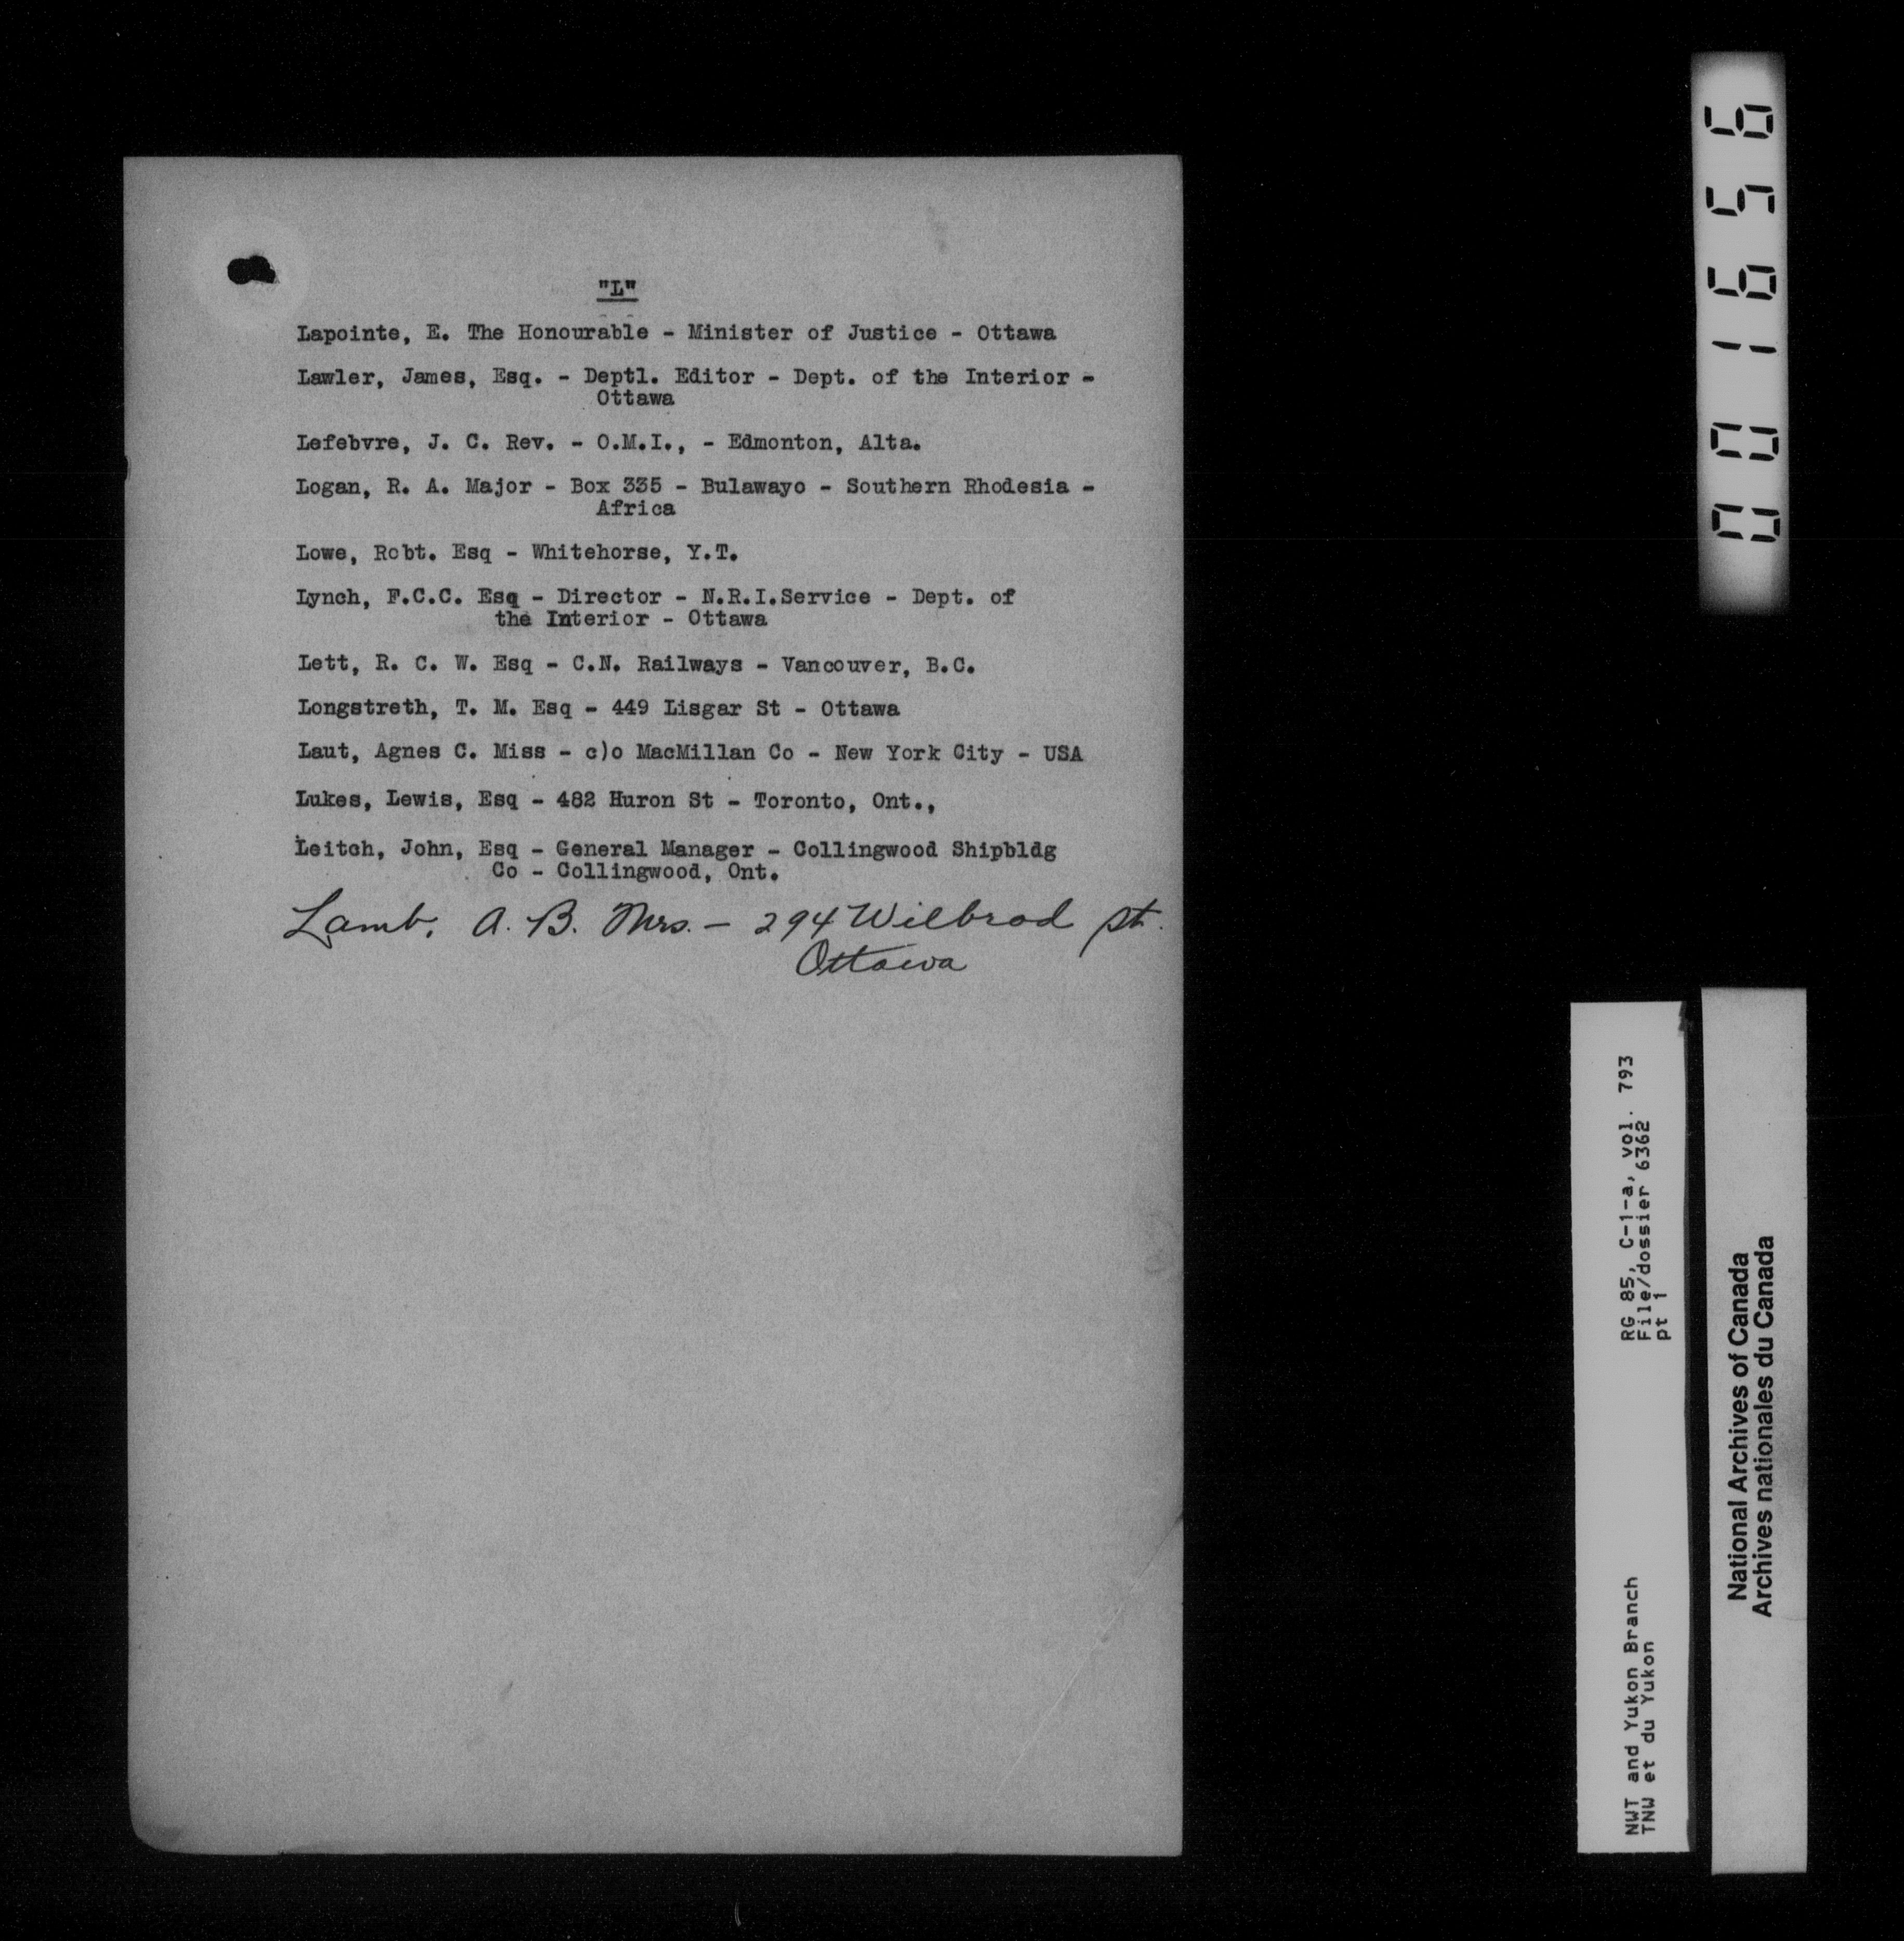 "L"
Lapointe, E. The Honourable - Minister of Justice - Ottawa
Lawler, James, Esq. - Deptl. Editor - Dept. of the Interior -
Ottawa
Lefebvre, J. C. Rev. - O.M.I., - Edmonton, Alta.
Logan, R. A. Major - Box 335 - Bulawayo - Southern Rhodesia -
Africa
Lowe, Robt. Esq - Whitehorse, Y.T.
Lynch, F.C.C. Esq - Director - N.R.I.Service - Dept. of
the Interior - Ottawa
Lett, R. C. W. Esq - C.N. Railways - Vancouver, B.C.
Longstreth, T. M. Esq - 449 Lisgar St - Ottawa
Laut, Agnes C. Miss - c)o MacMillan Co - New York City - USA
Lukes, Lewis, Esq - 482 Huron St - Toronto, Ont.,
Leitch, John, Esq - General Manager - Collingwood Shipbldg
Co - Collingwood, Ont.
Lamb, A. B. Mrs. - 294 Wilbrod St.
Ottawa
001656
NWT and Yukon Branch
TNW et du Yukon
RG 85, C-1-a, vol. 793
File/dossier 6362
pt 1
National Archives of Canada
Archives nationales du Canada